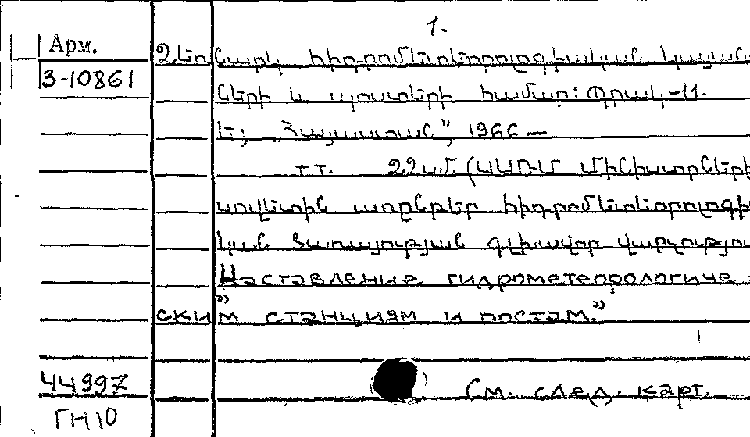 1.
Арм.
3-10861
Ձեռնարկ հիդրոմետեորոլոգիական կայան
ների և պոստերի համար: Պրակ-11.
Ե; Հայաստան", 1966 —
т.т. 22 սմ (ՍՍՌՄ Մինիստրների
սովետին առընթեր հիդրոմետեորոլոգի
կան ծառայության գլխավոր վարչությու
"Наставление гидрометеорологиче
ским станциям и постам."
44997
См. след. карт.
ГН10